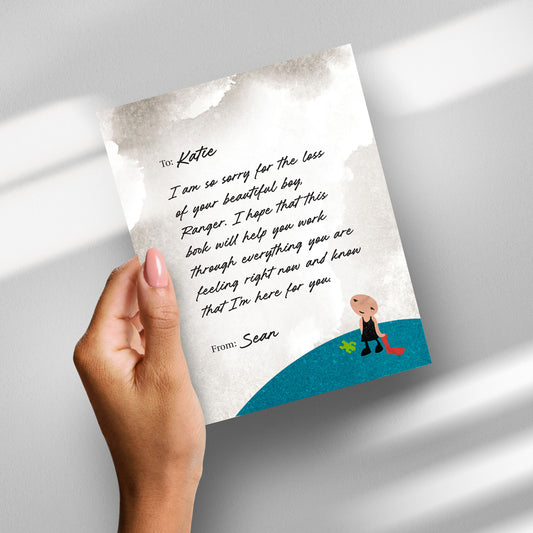 To: Katie
I am so sorry for the loss
of your beautiful boy,
Ranger. I hope that this
book will help you work
through everything you are
feeling right now and know
that I'm here for you.
From: Sean